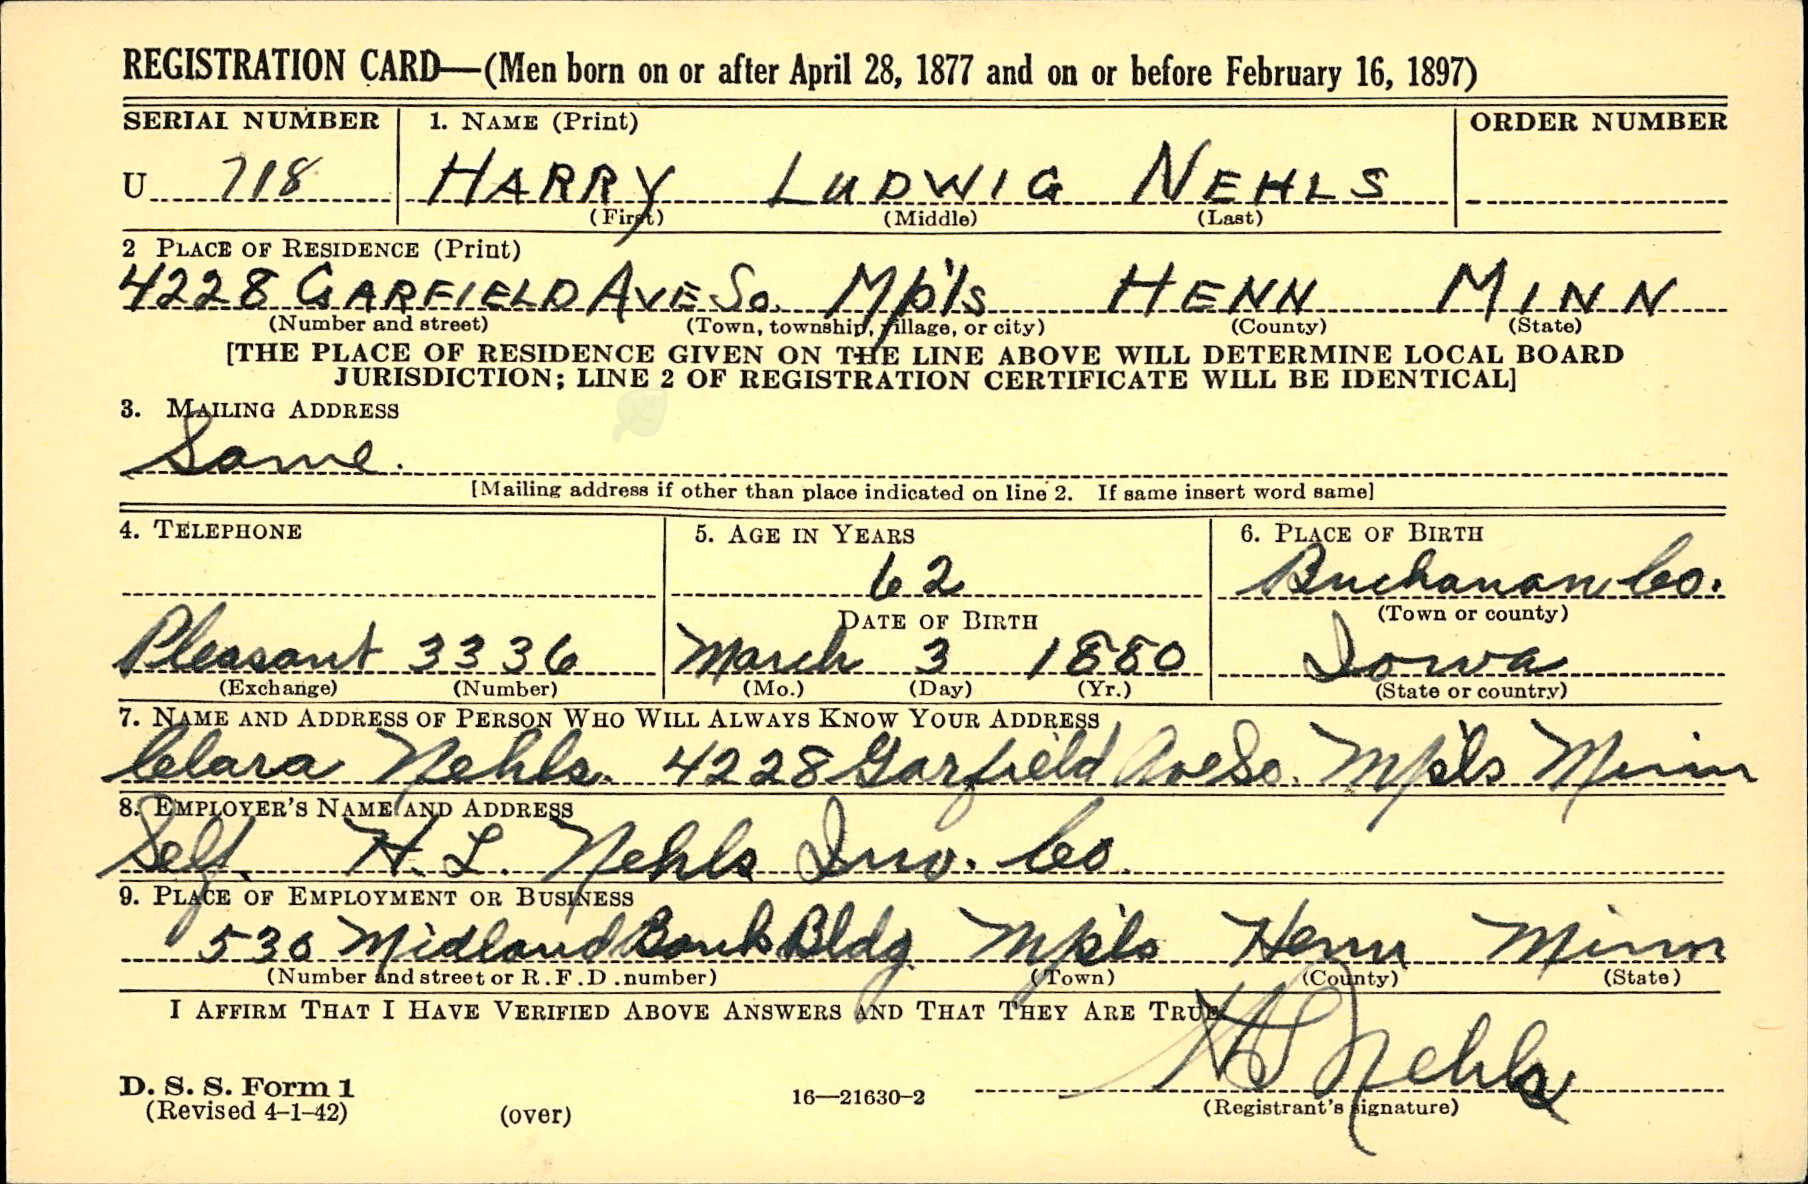 REGISTRATION CARD—(Men born on or after April 28, 1877 and on or before February 16, 1897)
SERIAL NUMBER 1. NAME (Print) ORDER NUMBER
U 718 HARRY LUDWIG NEHLS
(First) (Middle) (Last)
2 PLACE OF RESIDENCE (Print)
4228 GARFIELD AVE So. Mp'ls HENN MINN
(Number and street) (Town, township, village, or city) (County) (State)
[THE PLACE OF RESIDENCE GIVEN ON THE LINE ABOVE WILL DETERMINE LOCAL BOARD
JURISDICTION; LINE 2 OF REGISTRATION CERTIFICATE WILL BE IDENTICAL]
3. MAILING ADDRESS
Same.
[Mailing address if other than place indicated on line 2. If same insert word same]
4. TELEPHONE 5. AGE IN YEARS 6. PLACE OF BIRTH
62 Buchanan Co.
DATE OF BIRTH (Town or county)
Pleasant 3336 March 3 1880 Iowa
(Exchange) (Number) (Mo.) (Day) (Yr.) (State or country)
7. NAME AND ADDRESS OF PERSON WHO WILL ALWAYS KNOW YOUR ADDRESS
Clara Nehls. 4228 Garfield Ave So. Mpls Minn
8. EMPLOYER'S NAME AND ADDRESS
Self. H. L. Nehls Inv. Co.
9. PLACE OF EMPLOYMENT OR BUSINESS
530 Midland Bank Bldg Mpls Henn Minn
(Number and street or R.F.D. number) (Town) (County) (State)
I AFFIRM THAT I HAVE VERIFIED ABOVE ANSWERS AND THAT THEY ARE TRUE.
H L Nehls
D. S. S. Form 1 16—21630-2
(Revised 4-1-42) (over) (Registrant's signature)